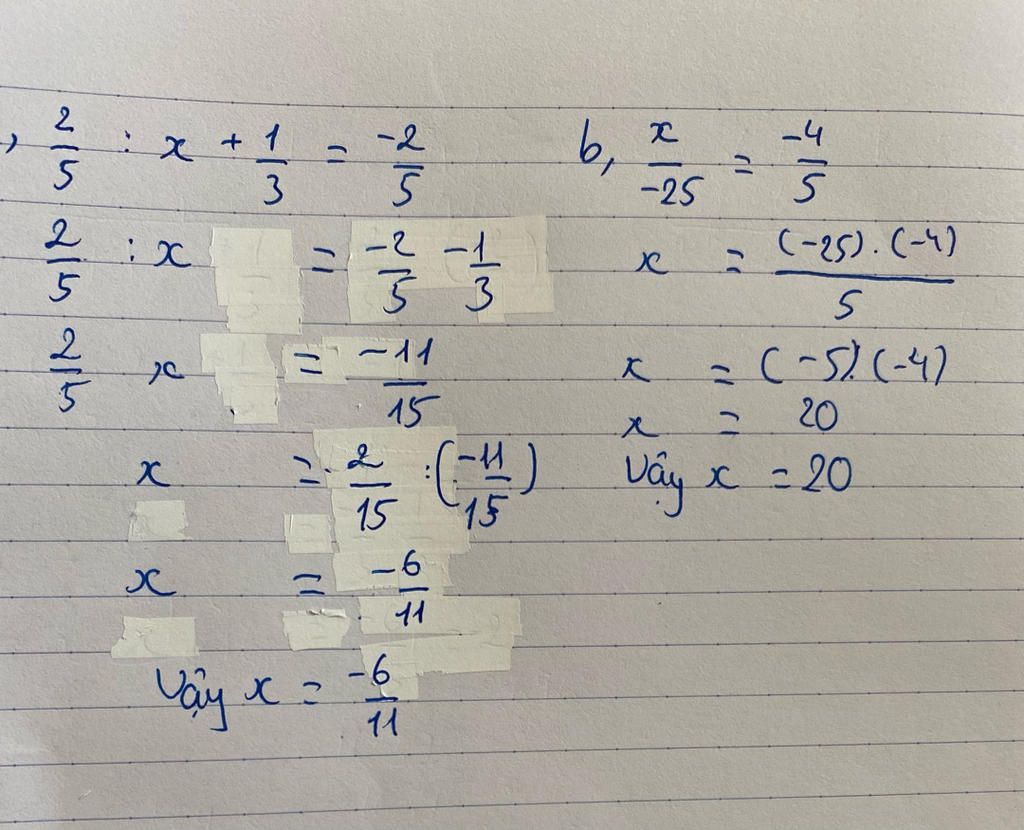 , 2/5 : x + 1/3 = -2/5
2/5 : x = -2/5 -1/3
2/5 : x = -11/15
x = 2/15 : (-11/15)
x = -6/11
Vậy x = -6/11
b, x/-25 = -4/5
x = (-25).(-4)/5
x = (-5).(-4)
x = 20
Vậy x = 20